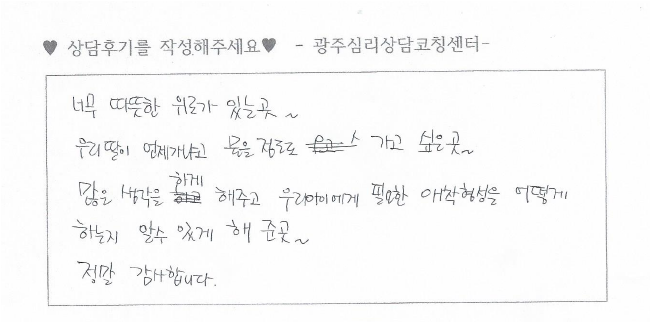 ♥ 상담후기를 작성해주세요♥ - 광주심리상담코칭센터-
너무 따뜻한 위로가 있는곳~
우리딸이 언제가냐고 물을정도로 가고 싶은곳~
많은 생각을 하게 해주고 우리아이에게 필요한 애착형성을 어떻게
하는지 알수 있게 해 준곳~
정말 감사합니다.